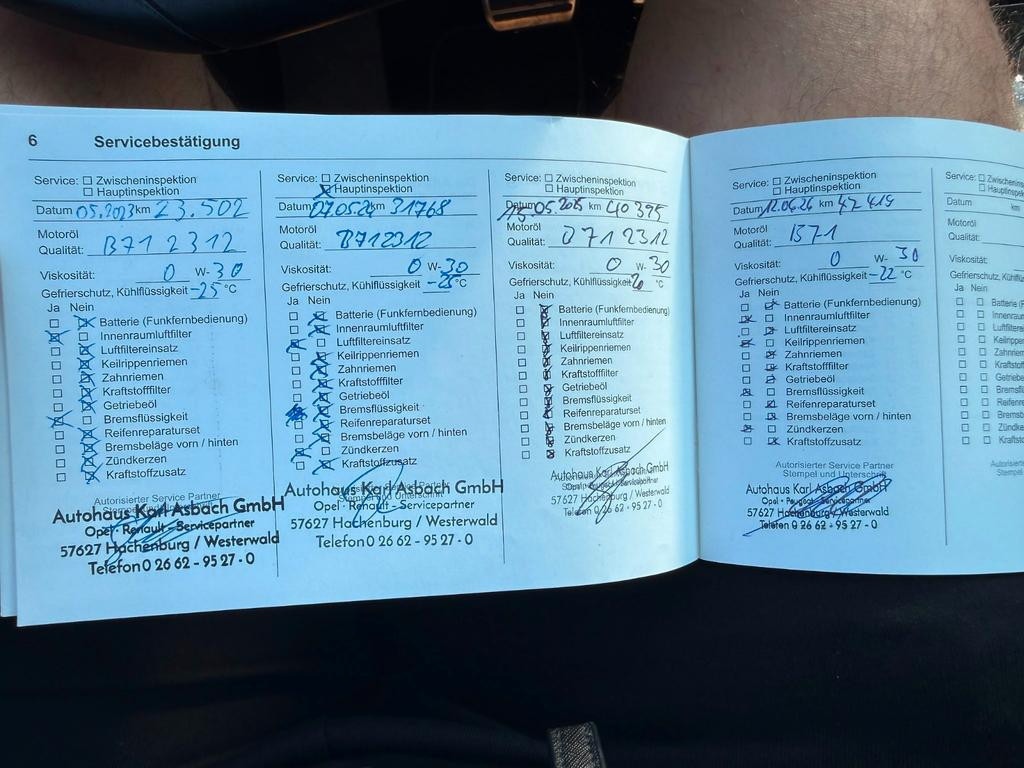 6 Servicebestätigung
Service: ☐ Zwischeninspektion
☐ Hauptinspektion
Datum 05.2023 km 23.502
Motoröl
Qualität: B71 2312
Viskosität: 0 W- 30
Gefrierschutz, Kühlflüssigkeit -25 °C
Ja Nein
Batterie (Funkfernbedienung)
Innenraumluftfilter
Luftfiltereinsatz
Keilrippenriemen
Zahnriemen
Kraftstofffilter
Getriebeöl
Bremsflüssigkeit
Reifenreparaturset
Bremsbeläge vorn / hinten
Zündkerzen
Kraftstoffzusatz
Autorisierter Service Partner
Autohaus Karl Asbach GmbH
Opel · Renault - Servicepartner
57627 Hachenburg / Westerwald
Telefon 0 26 62 - 95 27 - 0
Service: ☐ Zwischeninspektion
☒ Hauptinspektion
Datum 07.05.24 km 31768
Motoröl
Qualität: B712312
Viskosität: 0 W- 30
Gefrierschutz, Kühlflüssigkeit -25 °C
Ja Nein
Batterie (Funkfernbedienung)
Innenraumluftfilter
Luftfiltereinsatz
Keilrippenriemen
Zahnriemen
Kraftstofffilter
Getriebeöl
Bremsflüssigkeit
Reifenreparaturset
Bremsbeläge vorn / hinten
Zündkerzen
Kraftstoffzusatz
Autohaus Karl Asbach GmbH
Opel · Renault - Servicepartner
57627 Hachenburg / Westerwald
Telefon 0 26 62 - 95 27 - 0
Service: ☐ Zwischeninspektion
☐ Hauptinspektion
Datum 05.2025 km 40395
Motoröl
Qualität: B71 2312
Viskosität: 0 W- 30
Gefrierschutz, Kühlflüssigkeit °C
Ja Nein
Batterie (Funkfernbedienung)
Innenraumluftfilter
Luftfiltereinsatz
Keilrippenriemen
Zahnriemen
Kraftstofffilter
Getriebeöl
Bremsflüssigkeit
Reifenreparaturset
Bremsbeläge vorn / hinten
Zündkerzen
Kraftstoffzusatz
Autohaus Karl Asbach GmbH
57627 Hachenburg / Westerwald
Telefon 0 26 62 - 95 27 - 0
Service: ☐ Zwischeninspektion
☐ Hauptinspektion
Datum km 47 419
Motoröl
Qualität: B71
Viskosität: 0 W- 30
Gefrierschutz, Kühlflüssigkeit -22 °C
Ja Nein
Batterie (Funkfernbedienung)
Innenraumluftfilter
Luftfiltereinsatz
Keilrippenriemen
Zahnriemen
Kraftstofffilter
Getriebeöl
Bremsflüssigkeit
Reifenreparaturset
Bremsbeläge vorn / hinten
Zündkerzen
Kraftstoffzusatz
Autorisierter Service Partner
Stempel und Unterschrift
Autohaus Karl Asbach GmbH
Opel · Peugeot - Servicepartner
57627 Hachenburg / Westerwald
Telefon 0 26 62 - 95 27 - 0
Service:
Datum km
Motoröl
Qualität:
Viskosität:
Ja Nein